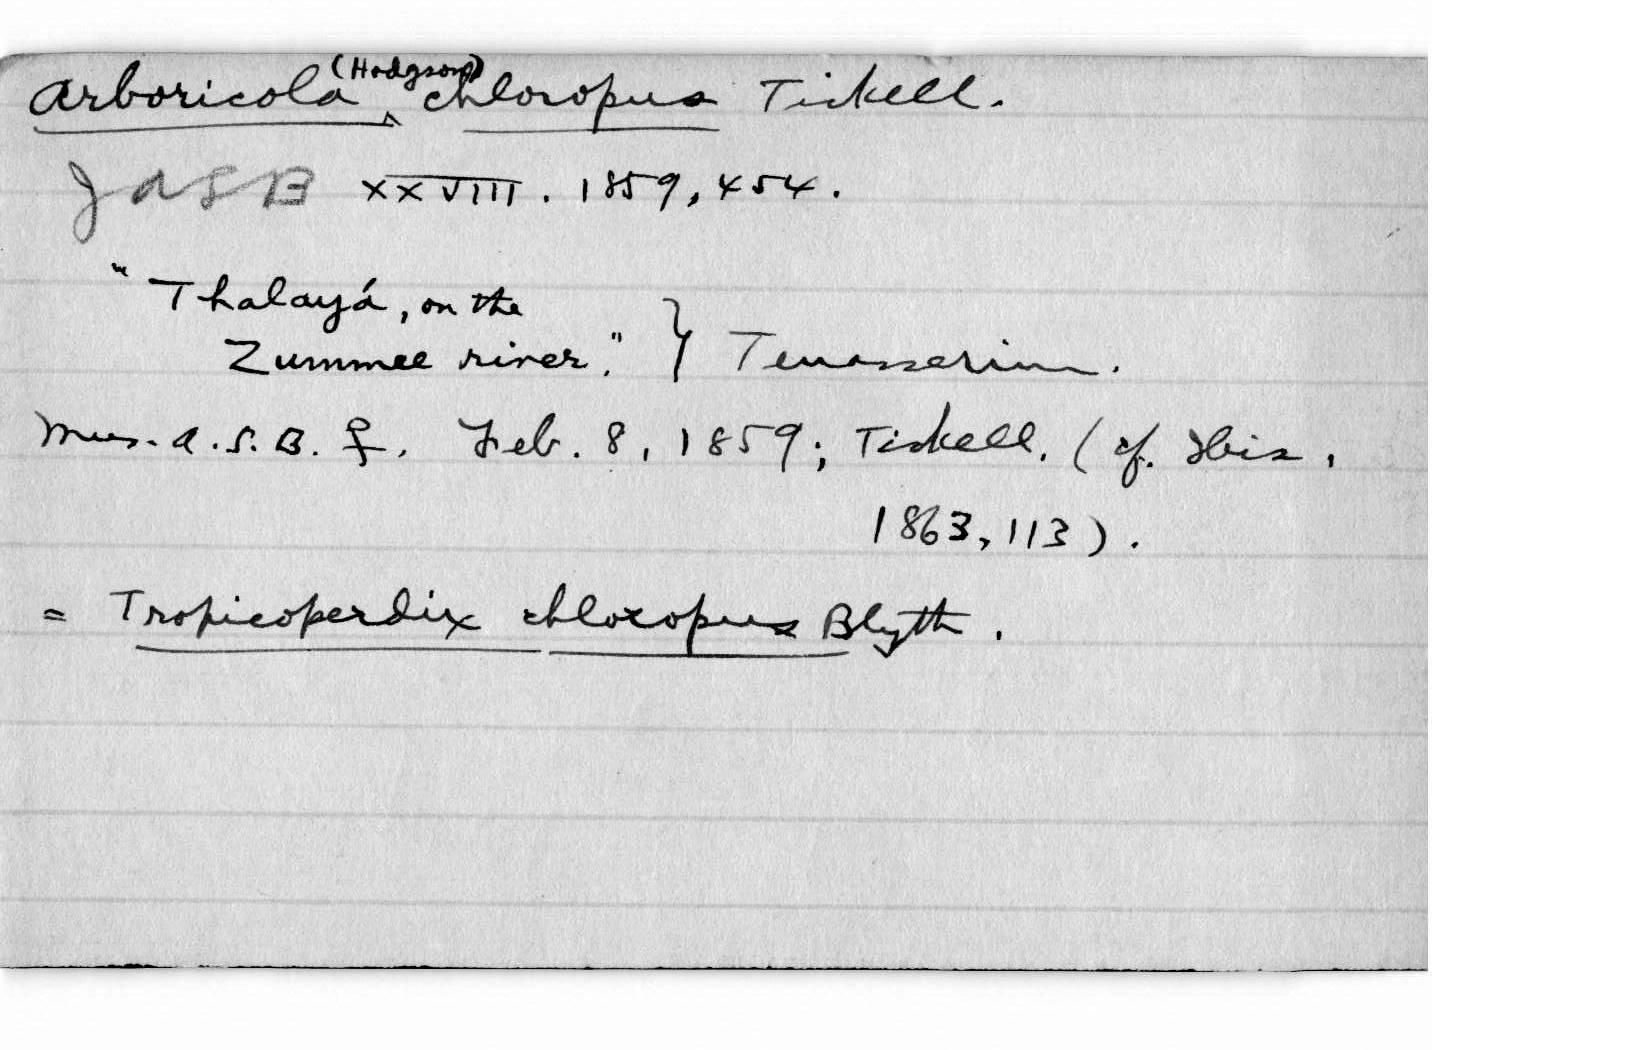 Arboricola (Hodgson) chloropus Tickell.
JASB XXVIII. 1859, 454.
"Thalayá, on the
Zummee river." } Tenasserim.
Mus. A.S.B. ♀. Feb. 8, 1859; Tickell. (cf. Ibis,
1863, 113).
= Tropicoperdix chloropus Blyth.